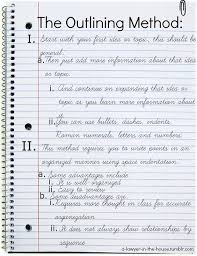 The Outlining Method:
I. Start with your first idea or topic, this should be
general.
a. Then just add more information about that idea
or topic.
i. And continue on expanding that idea or
topic as you learn more information about
it.
ii. You can use bullets, dashes, indents,
Roman numerals, letters and numbers.
II. This method requires you to write points in an
organized manner using space indentation.
a. Some advantages include
i. It is well-organized
ii. Easy to review
b. Some disadvantages are
i. Requires more thought in class for accurate
organization
ii. It does not always show relationships by
sequence
a-lawyer-in-the-house.tumblr.com